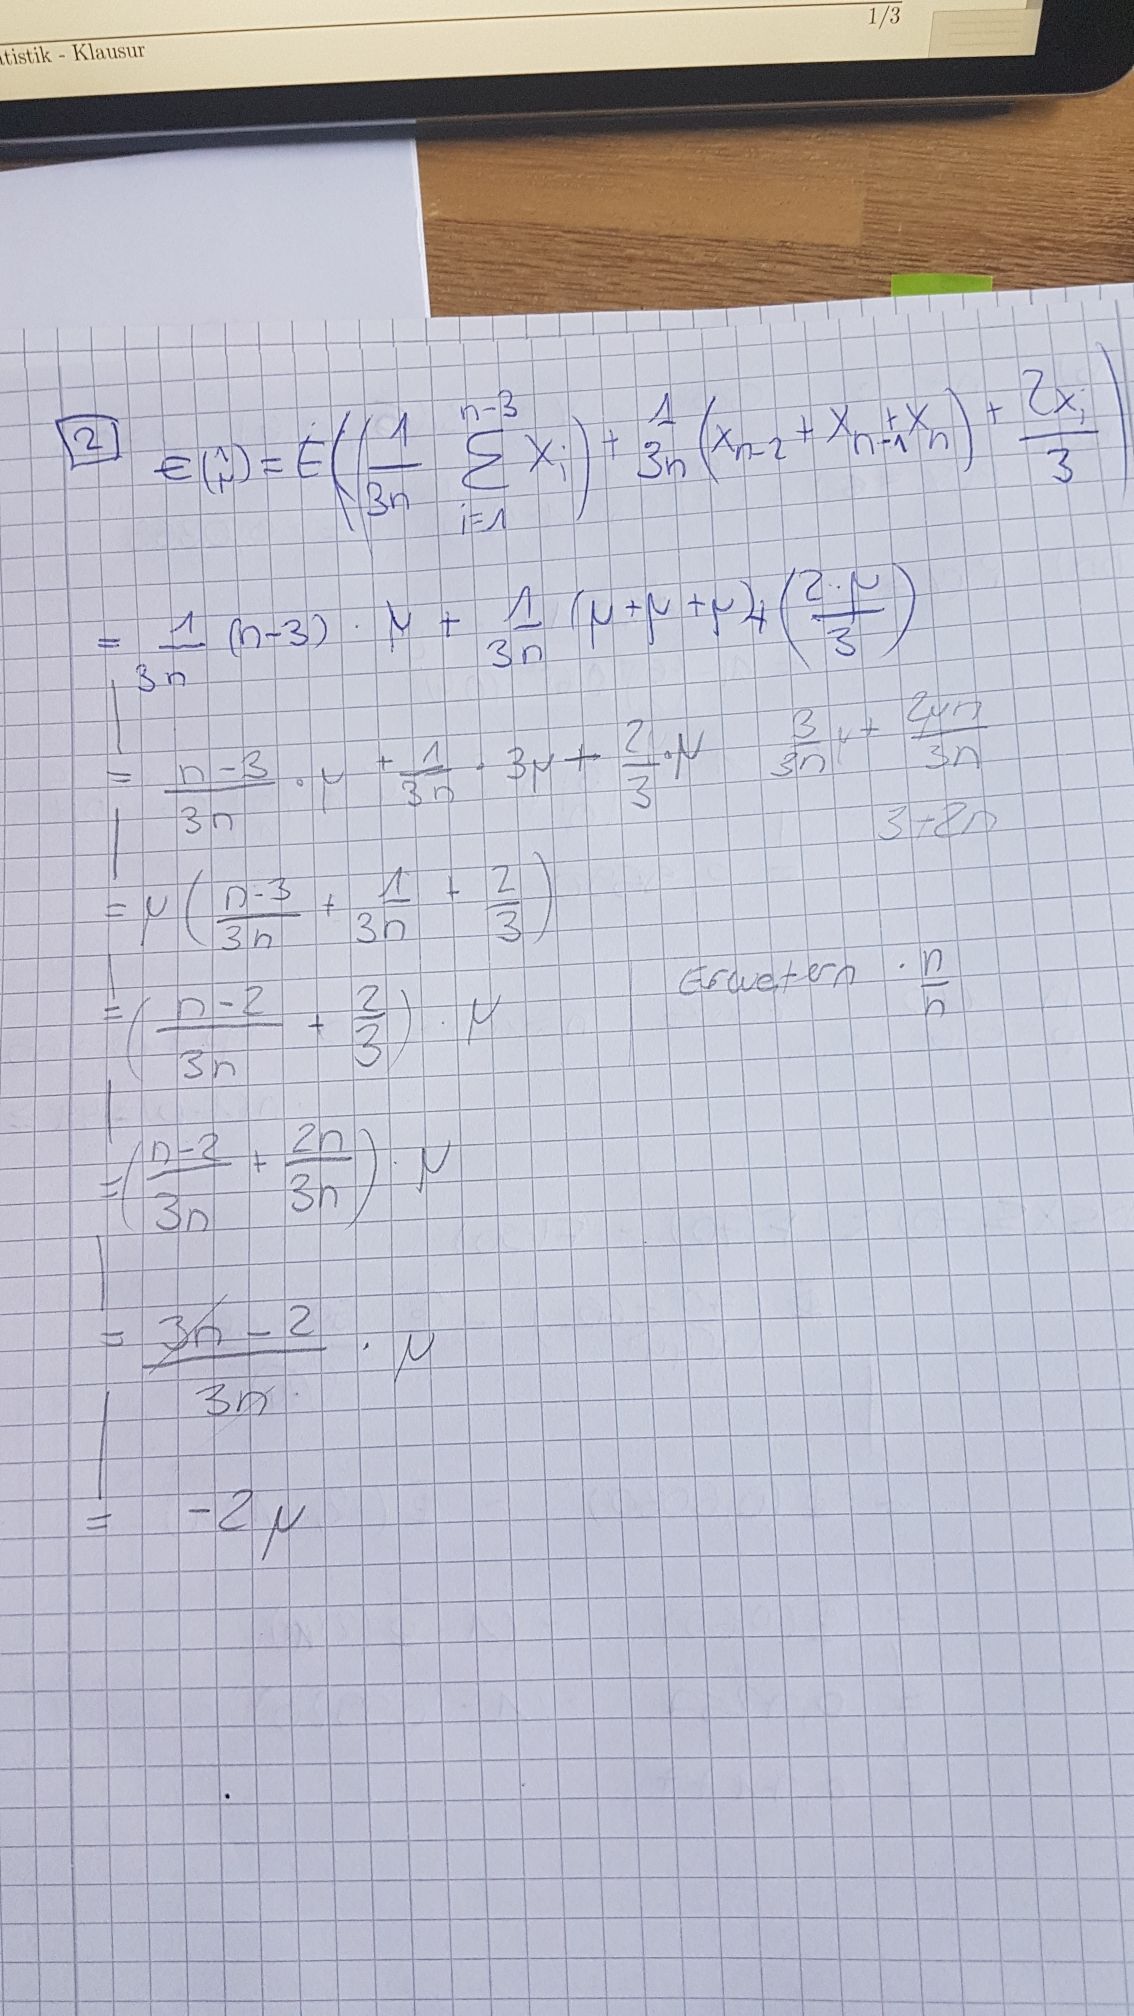 1/3
tistik - Klausur
2 E(μ̂) = E((1/3n ∑_{i=1}^{n-3} x_i) + 1/3n (x_{n-2} + x_{n-1} + x_n) + 2x_i/3)
= 1/3n (n-3) · μ + 1/3n (μ + μ + μ) + (2·μ/3)
= n-3/3n · μ + 1/3n · 3μ + 2/3 · μ 3/3n μ + 2μn/3n
3+2n
= μ (n-3/3n + 1/3n + 2/3)
= (n-2/3n + 2/3) · μ | Erweitern · n/n
= (n-2/3n + 2n/3n) · μ
= 3n-2/3n · μ
= -2μ